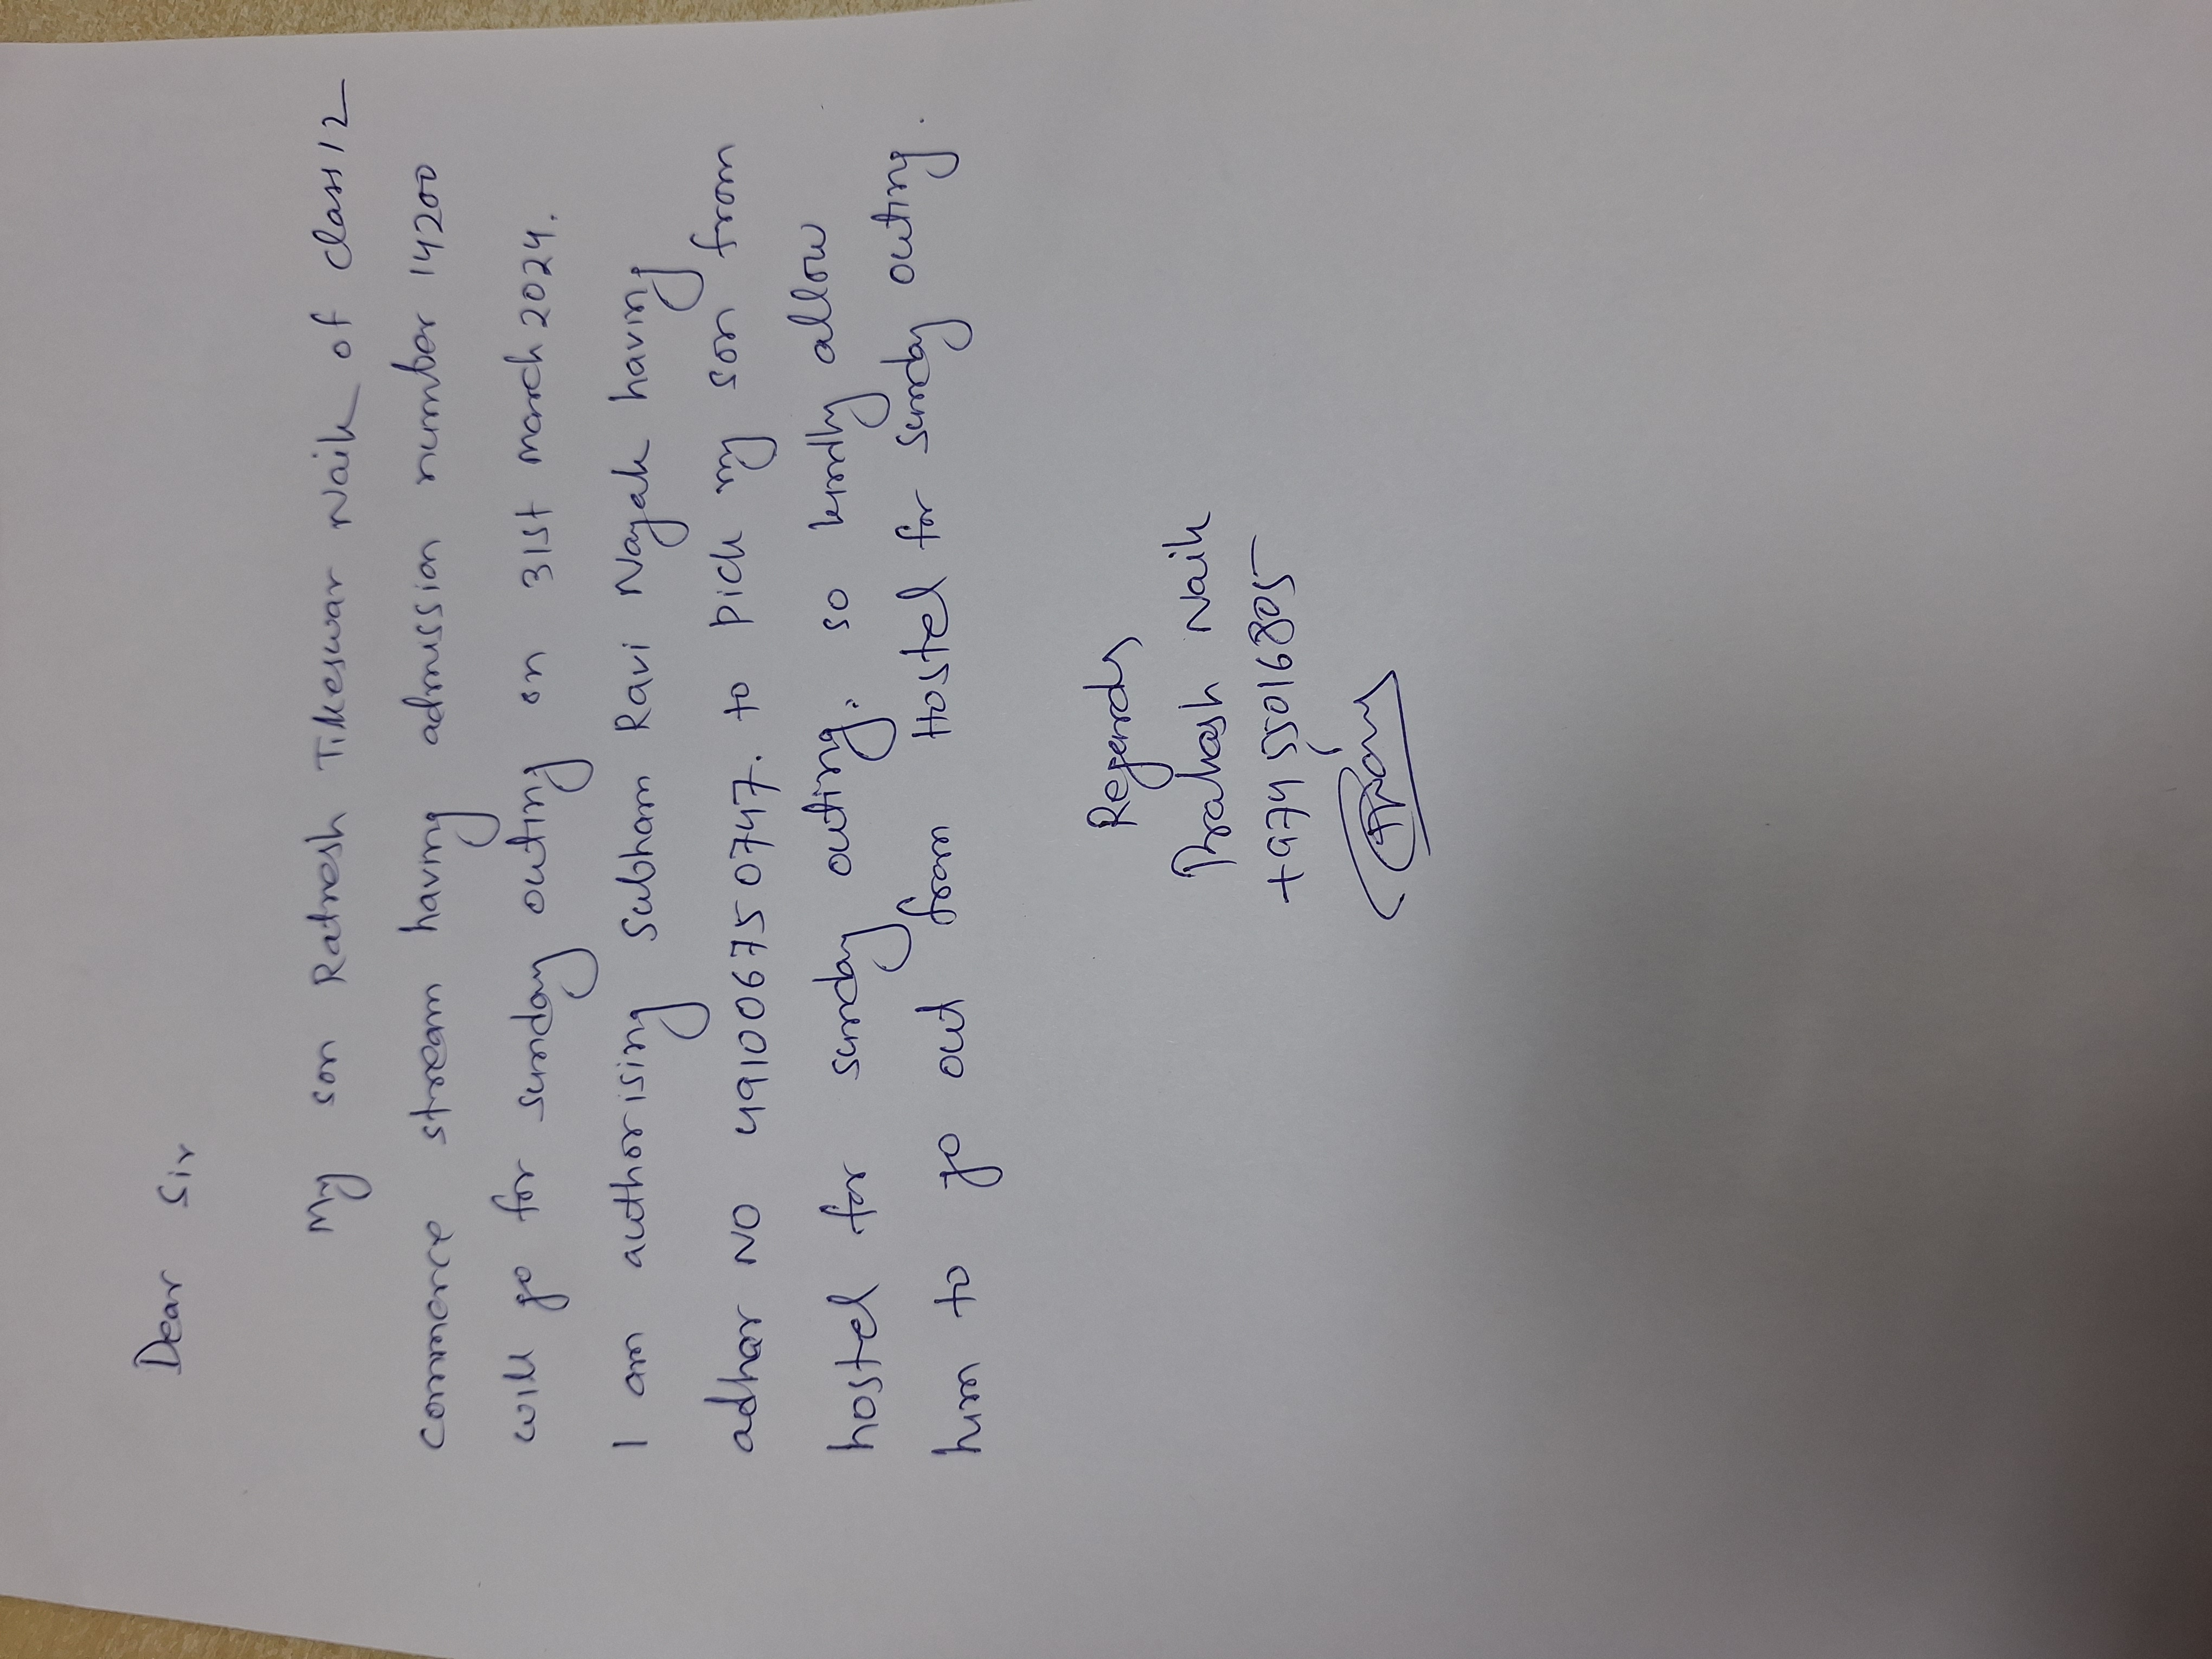 Dear Sir
My son Ratnesh Tikeswar Naik of class 12
commerce stream having admission number 14200
will go for sunday outing on 31st march 2024.
I am authorising Subham Ravi Nayak having
adhar NO 491006750747. to pick my son from
hostel for sunday outing. so kindly allow
him to go out from Hostel for sunday outing.
Regards
Prakash Naik
+97455016805